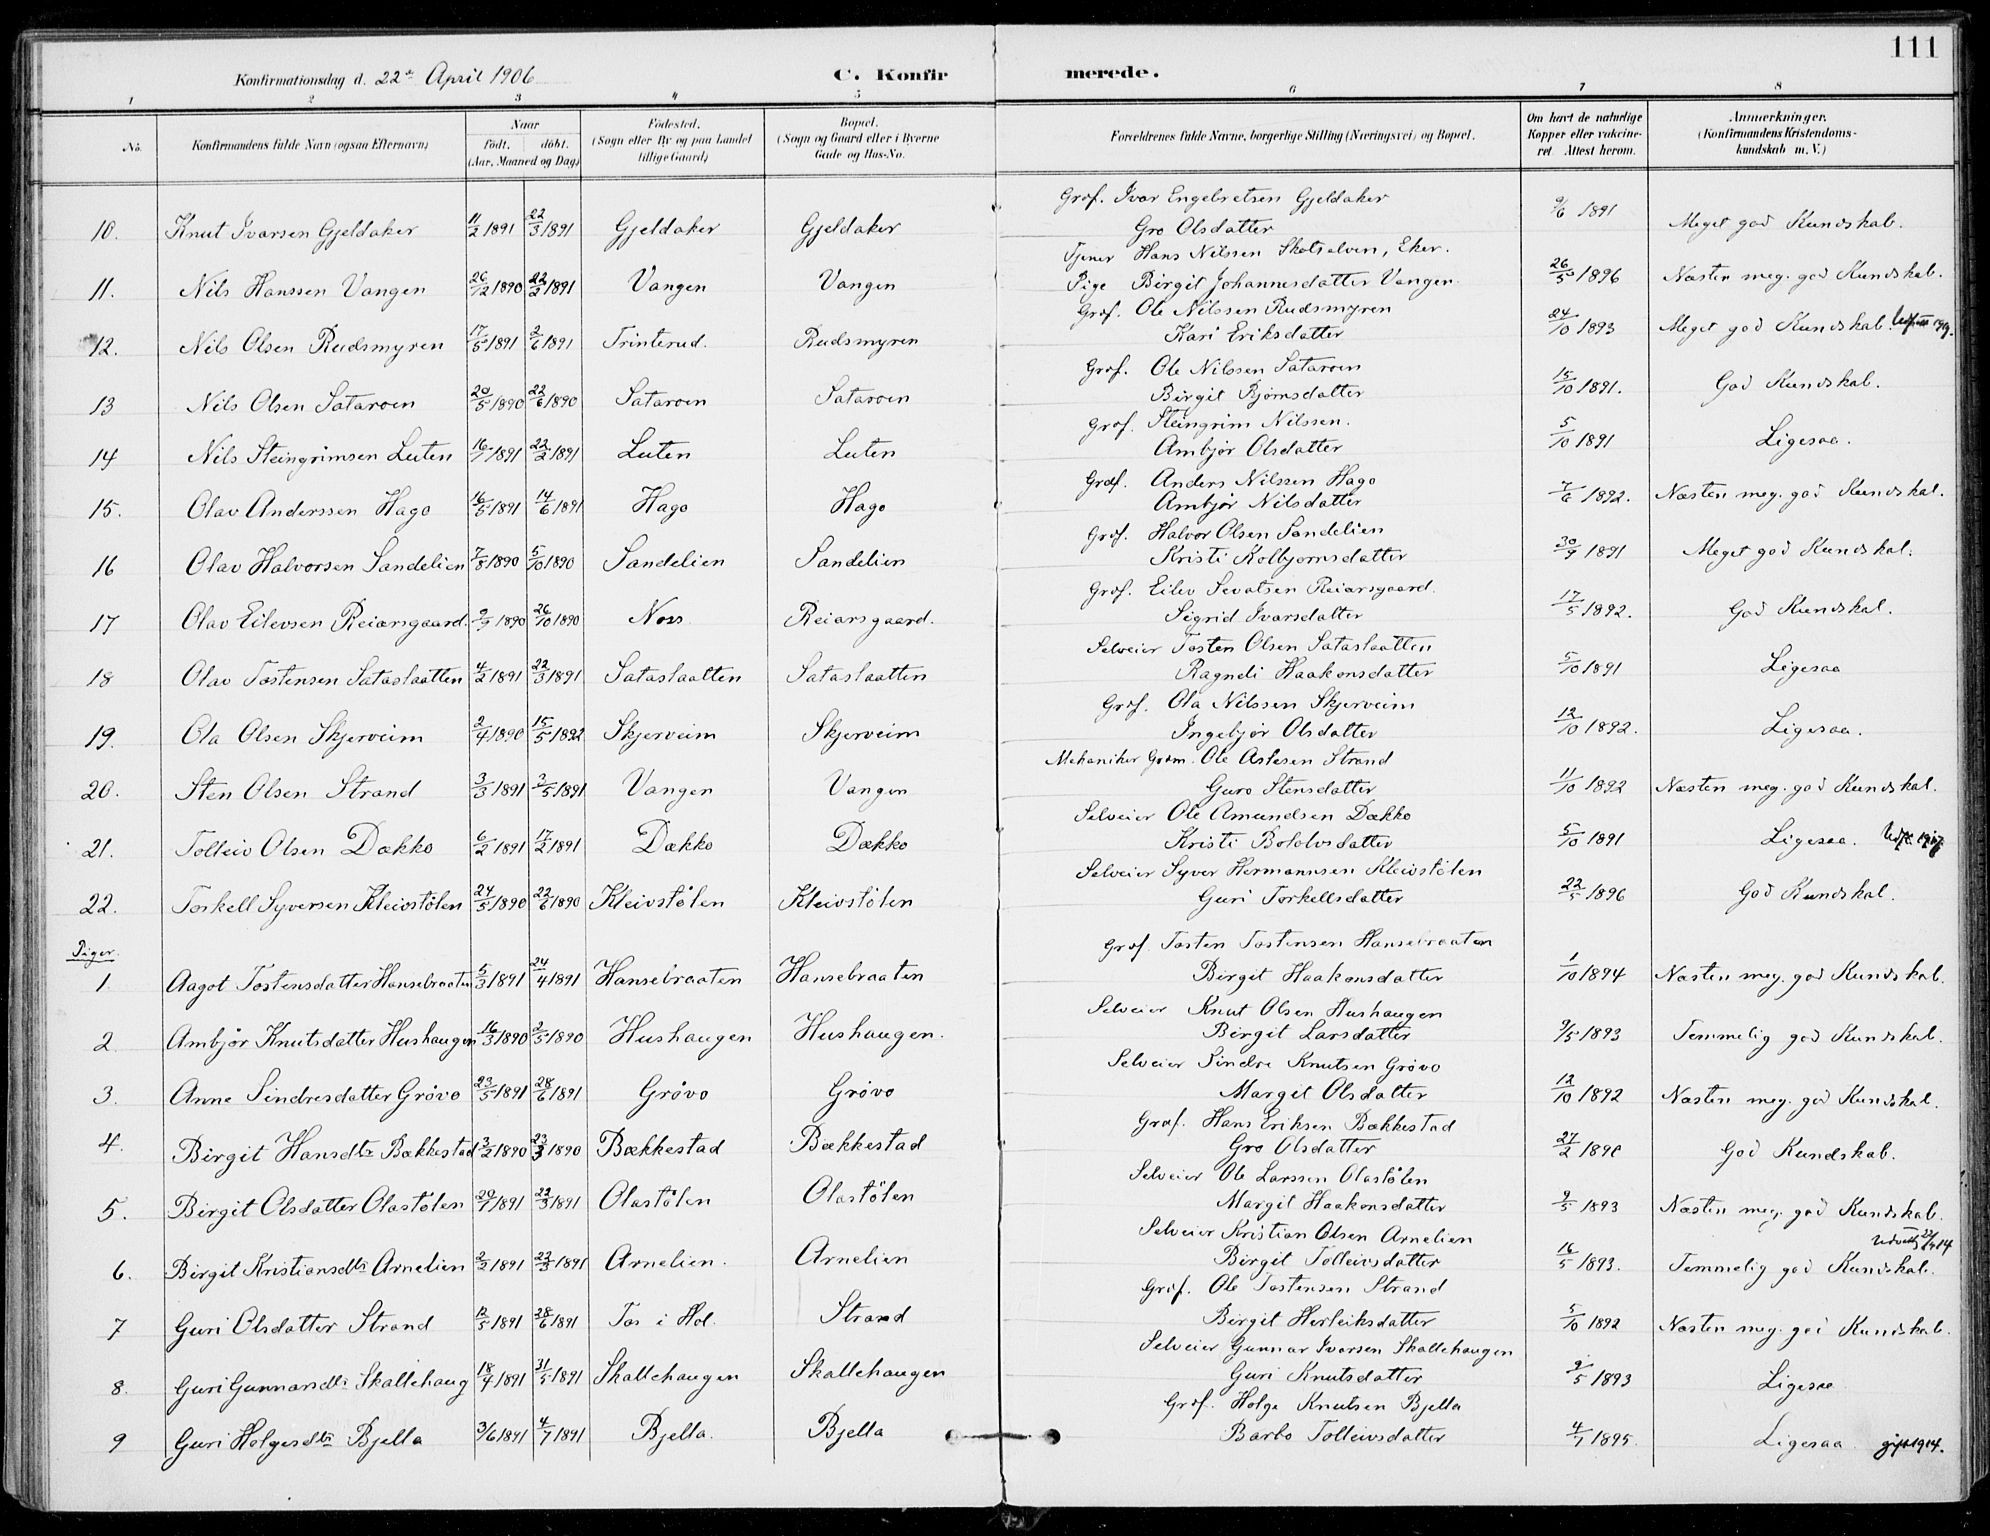 111
Konfirmationsdag d. 22de April 1906
C. Konfirmerede.
1 2 3 4 5 6 7 8
No. | Konfirmandens fulde Navn (ogsaa Efternavn) | Naar født. døbt. (Aar, Maaned og Dag) | Födested. (Sogn eller By og paa Landet tillige Gaard) | Bopæl. (Sogn og Gaard eller i Byerne Gade og Hus-No. | Forældrenes fulde Navne, borgerlige Stilling (Næringsvei) og Bopæl. | Om havt de naturlige Kopper eller vakcineret. Attest herom. | Anmærkninger. (Konfirmandens Kristendomskundskab m. V.)
10. Knut Ivarsen Gjeldaker 11/2 1891 22/3 1891 Gjeldaker Gjeldaker Grdf. Ivar Engebretsen Gjeldaker Gro Olsdatter 9/6 1891 Meget god Kundskab.
11. Nils Hanssen Vangen 26/12 1890 22/2 1891 Vangen Vangen Tjener Hans Nilssen Skotselven, Eker. Pige Birgit Johannesdatter Vangen 26/5 1896 Næsten meg. god Kundskab.
12. Nils Olsen Rudsmyren 17/5 1891 2/6 1891 Trinterud. Rudsmyren Grdf. Ole Nilssen Rudsmyren Kari Eriksdatter 24/10 1893 Meget god Kundskab.
13 Nils Olsen Sataroen 20/5 1890 22/6 1890 Sataroen Sataroen Grdf. Ole Nilssen Sataroen Birgit Bjørnsdatter 15/10 1891. God Kundskab.
14 Nils Steingrimsen Luten 16/1 1891 22/2 1891 Luten Luten Grdf. Steingrim Nilssen. Ambjør Olsdatter 5/10 1891 Ligesaa.
15. Olav Anderssen Hago 16/5 1891 14/6 1891 Hago Hago Grdf. Anders Nilssen Hago Ambjør Nilsdatter 7/6 1892. Næsten meg. god Kundskab.
16 Olav Halvorsen Sandelien 7/8 1890 5/10 1890 Sandelien Sandelien Grdf. Halvor Olsen Sandelien Kristi Kolbjørnsdatter 30/9 1891 Meget god Kundskab.
17 Olav Eilevsen Reiarsgaard. 2/9 1890 26/10 1890 Noss Reiarsgaard. Grdf. Eilev Sevatsen Reiarsgaard. Sigrid Ivarsdatter 17/5 1892. God Kundskab.
18 Olav Tostensen Sataslaatten 4/2 1891 22/3 1891 Sataslaatten Sataslaatten Selveier Tosten Olsen Sataslaatten Ragndi Haakonsdatter 5/10 1891 Ligesaa
19. Ola Olsen Skjerveim 2/4 1890 15/5 1892 Skjerveim Skjerveim Grdf. Ola Nilssen Skjerveim Ingebjør Olsdatter 12/10 1892. Ligesaa.
20. Sten Olsen Strand 3/3 1891 3/5 1891 Vangen Vangen Mekaniker Grdm. Ole Aslesen Strand Guro Stensdatter 11/10 1892 Næsten meg. god Kundskab.
21. Tolleiv Olsen Dækko 6/2 1891 17/2 1891 Dækko Dækko Selveier Ole Amundsen Dækko Kristi Botolvsdatter 5/10 1891 Ligesaa.
22. Torkell Syversen Kleivstølen 24/5 1890 22/6 1890 Kleivstølen Kleivstølen Selveier Syver Hermannsen Kleivstølen Guri Torkellsdatter 22/5 1896 God Kundskab.
Piger.
1 Aagot Tostensdatter Hansebraaten 5/3 1891 24/4 1891 Hansebraaten Hansebraaten Grdf. Tosten Tostensen Hansebraaten Birgit Haakonsdatter 1/10 1894 Næsten meg. god Kundskab.
2. Ambjør Knutsdatter Hushaugen 16/3 1890 2/5 1890 Hushaugen Hushaugen. Selveier Knut Olsen Hushaugen Birgit Larsdatter 9/5 1893 Temmelig god Kundskab.
3. Anne Sindresdatter Grøvo 23/5 1891 28/6 1891 Grøvo Grøvo Selveier Sindre Knutsen Grøvo Margit Olsdatter 12/10 1892 Næsten meg. god Kundskab.
4. Birgit Hansdtr Bækkestad 3/2 1890 23/3 1890 Bækkestad Bækkestad Grdf. Hans Eriksen Bækkestad Gro Olsdatter 27/2 God Kundskab.
5. Birgit Olsdatter Olastølen 20/1 1891 22/3 1891 Olastølen Olastølen Selveier Ole Larssen Olastølen Margit Haakonsdatter 9/5 1893 Næsten meg. god Kundskab.
6. Birgit Kristiansdtr Arnelien 2/2 1891 22/3 1891 Arnelien. Arnelien Selveier Kristian Olsen Arnelien Birgit Tolleivsdatter 16/5 1893. Temmelig god Kundskab.
7 Guri Olsdatter Strand 12/5 1891 28/6 1891 Tos i Hol. Strand Grdf. Ole Tostensen Strand Birgit Herleiksdatter 5/10 1892 Næsten meg. god Kundskab.
8. Guri Gunnarsdtr Skallehaug 18/4 1891 31/5 1891 Skallehaugen Skallehaugen Selveier Gunnar Ivarsen Skallehaugen Guri Knutsdatter 9/5 1893 Ligesaa
9 Guri Holgesdtr Bjella 3/6 1891 4/7 1891 Bjella. Bjella Grdf. Holge Knutsen Bjella Barbo Tolleivsdatter 4/7 1895. Ligesaa gift 1914.